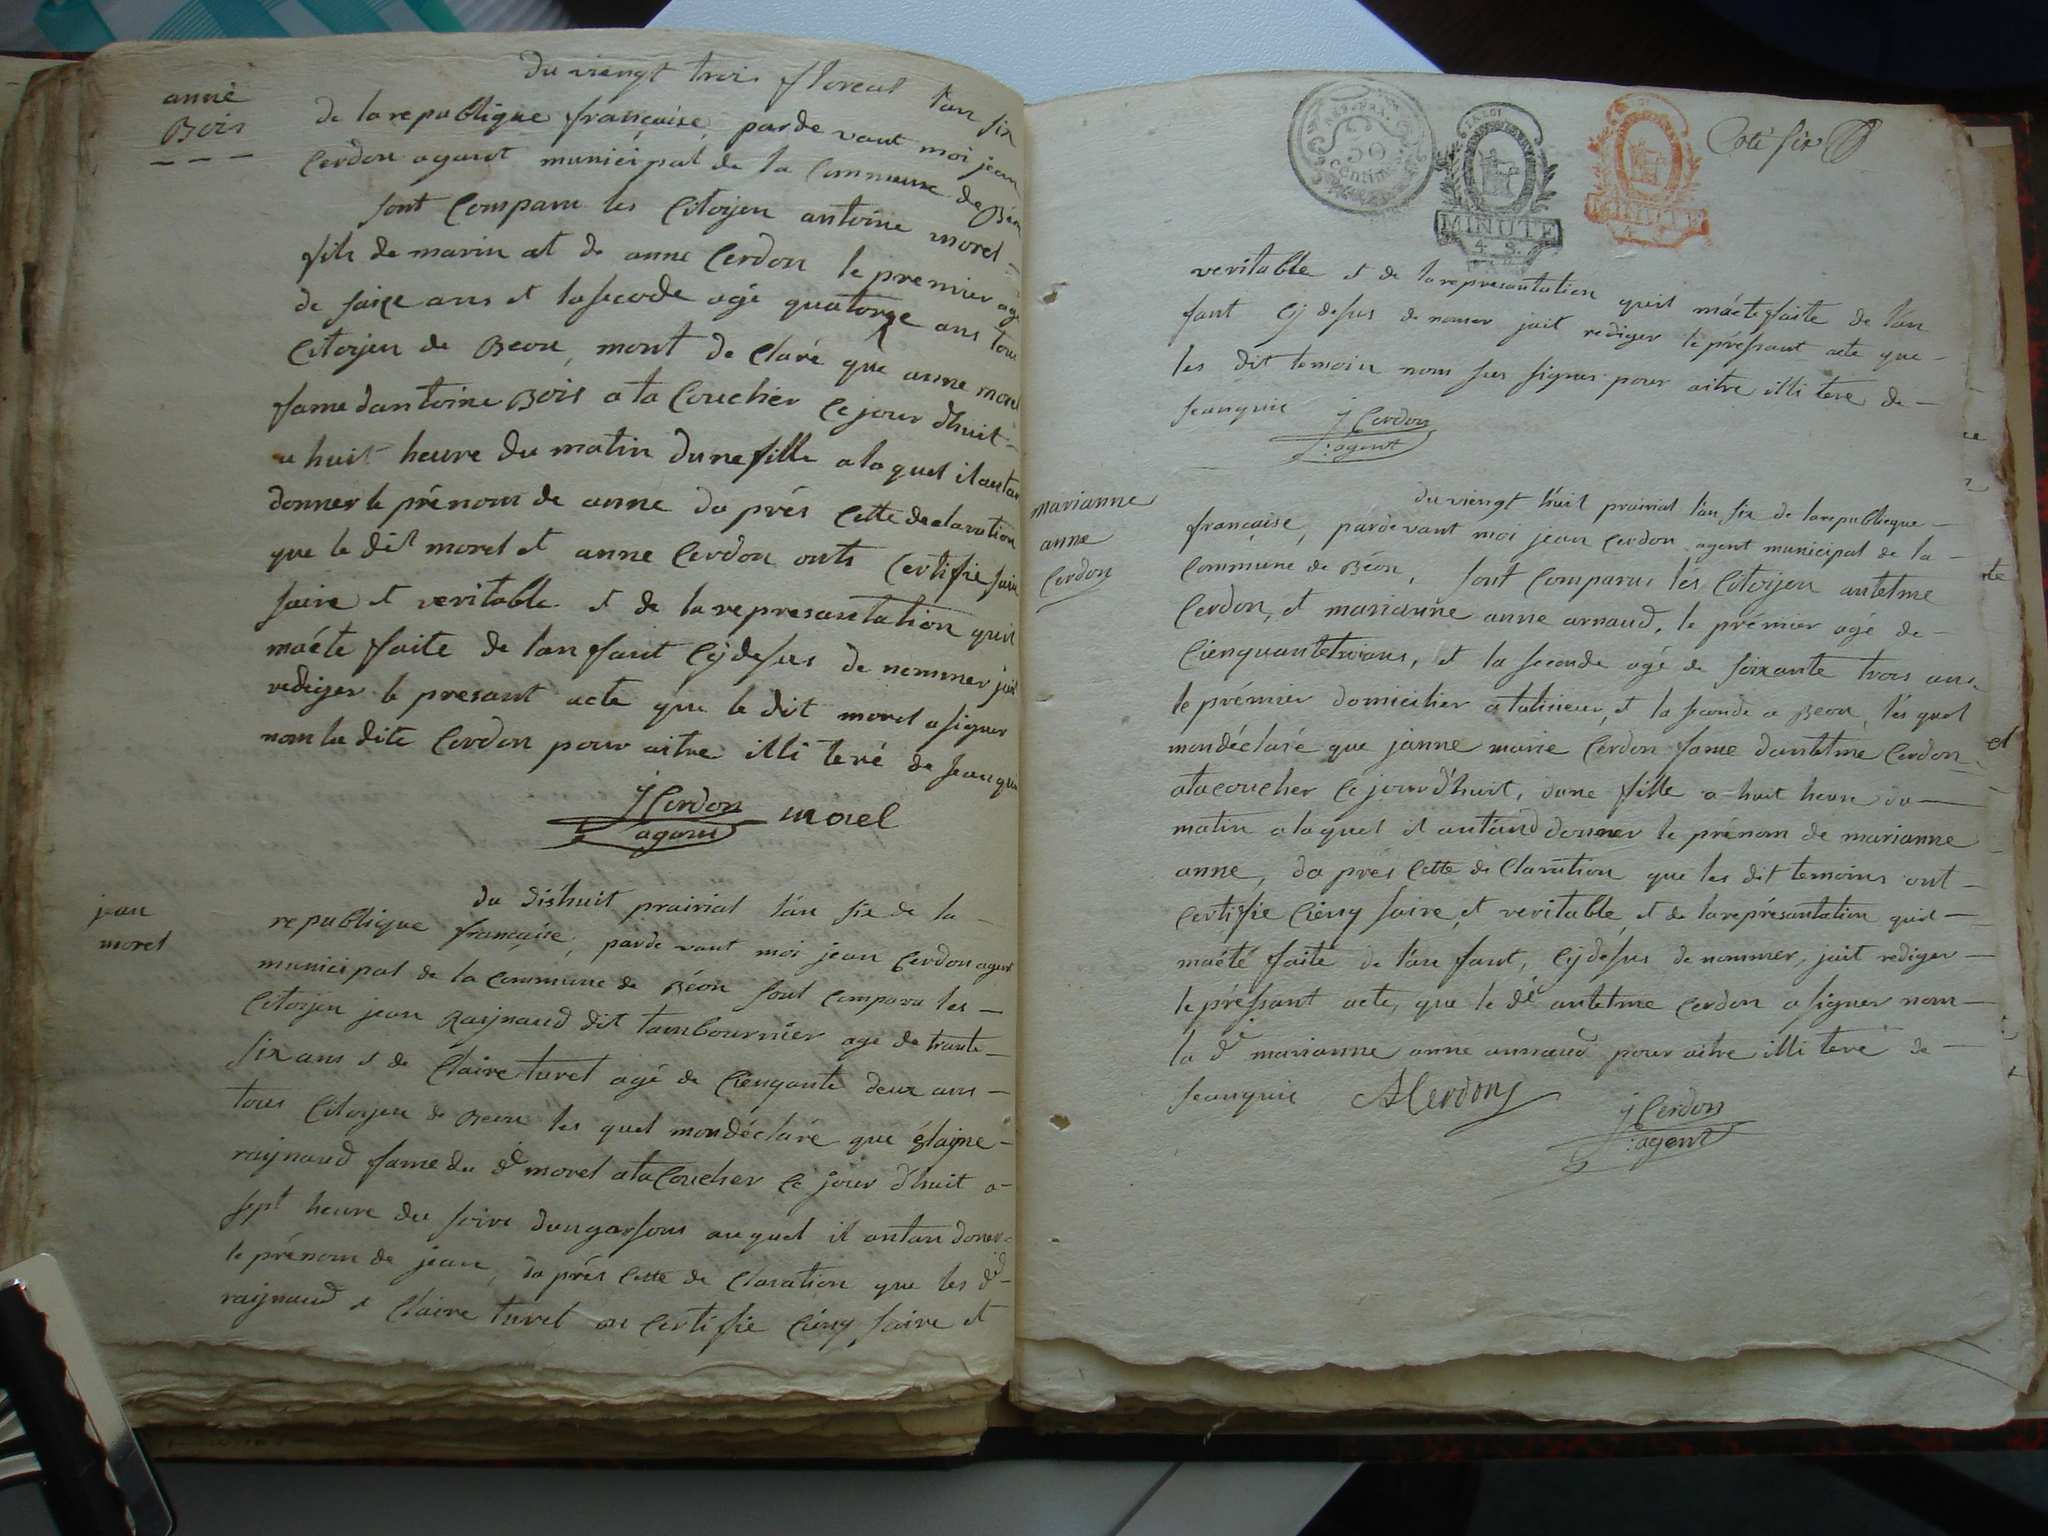 anne
Bois
du viengt trois floreal l'an six
de la republique française, parde vant moi jean
Cerdon agant municipal de la Commune de Béon
sont Comparu les Citoyen antoine morel
fils de marin et de anne Cerdon le premier agé
de saize ans et la secode agé quatorze ans tous
Citoyen de Beon, mont de Claré que anne morel
fame dantoine Bois a ta Coucher Ce jour d'huit
a huit heure du matin dune fille a la quel il antan
donner le prénom de anne da prés Cette declaration
que le dit morel et anne Cerdon onts Certifie
saire et veritable et de la represantation quil
maéte faite de lan fant Cij desus de nommer jait
rediger le presant acte que le dit morel a signer
nom la dite Cerdon pour aitre illi teré de
j Cerdon
agant
morel
jean
morel
du dishuit prairial l'an six de la
republique française, parde vant moi jean Cerdon agant
municipal de la Commune de Béon sont Comparu les
Citoyen jean Raynaud dit tambournier age de trante
six ans et de Claire turel agé de Ciengante deux ans
tous Citoyen de Beon les quel mondéclaré que
raynaud fame du dt morel a ta Coucher Ce jour d'huit a
sept heure du soire dun garsons au quel il antan doner
le prénom de jean, da prés Cette de Claration que les dit
raynaud et Claire turel on Certifie Cieng saire et
Coté six
50
Centimes
MINUTE
MINUTE
veritable et de la represantation quil maéte faite de l'an
fant Cij desus de nomer jait rediger le préssant acte que
les dit temoin nom sus signer pour aitre illi teré de
seanquis
j Cerdon
:agent
marianne
anne
Cerdon
du viengt huit prairial l'an six de la republicque
française, pardevant moi jean Cerdon agent municipal de la
Commune de Béon, sont Comparus les Citoyen antelme
Cerdon, et marianne anne arnaud, le prémier agé de
Cienquantetroians, et la seconde agé de soixante trois ans
le prémier domicilier a talissieu, et la seconde a Beon, les quel
mondéclaré que janne marie Cerdon fame dantelme Cerdon
atacoucher Ce jour d'huit, dune fille a huit heure du
matin a la quel il antand donner le prénom de marianne
anne, da prés Cette de Claration que les dit temoins ont
Certifie Cieng saire, et veritable, et de la représantation quil
maété faite de l'an fant, Cij desus de nommer, jait rediger
le préssant acte, que le dt antelme Cerdon a signer nom
la dt marianne anne arnaud pour aitre illi teré de
seanquis
A Cerdon
j Cerdon
:agent